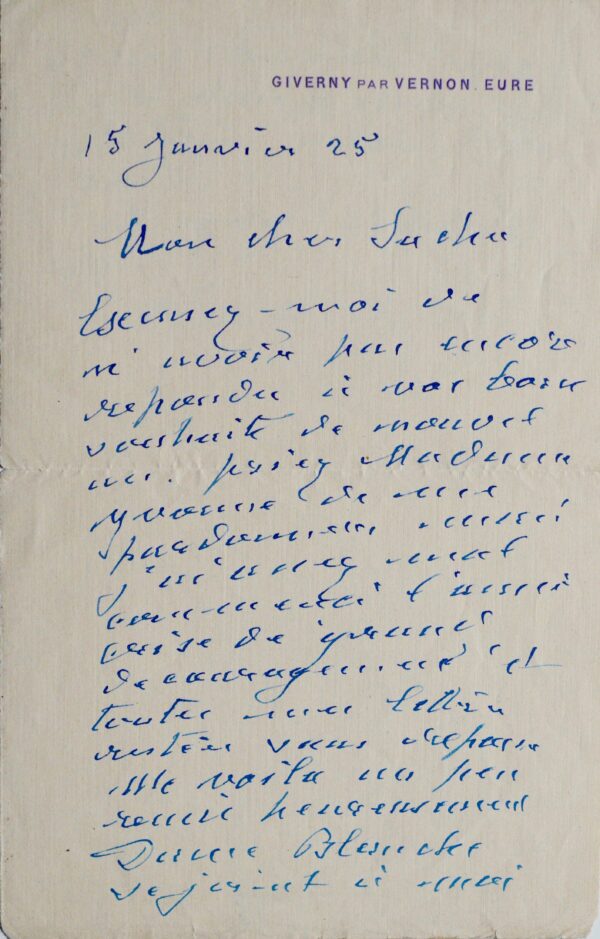 GIVERNY PAR VERNON. EURE
15 Janvier 25
Mon cher Sacha
Excusez-moi de
n'avoir pas encore
repondu à vos bons
souhaits de nouvel
an. priez Madame
Yvonne de me
pardonner aussi
j'ai assez mal
commencé l'année
crise de grand
decouragement et
toutes mes lettres
restées sans reponse
Me voila un peu
remis heureusement
Dame Blanche
se joint à moi